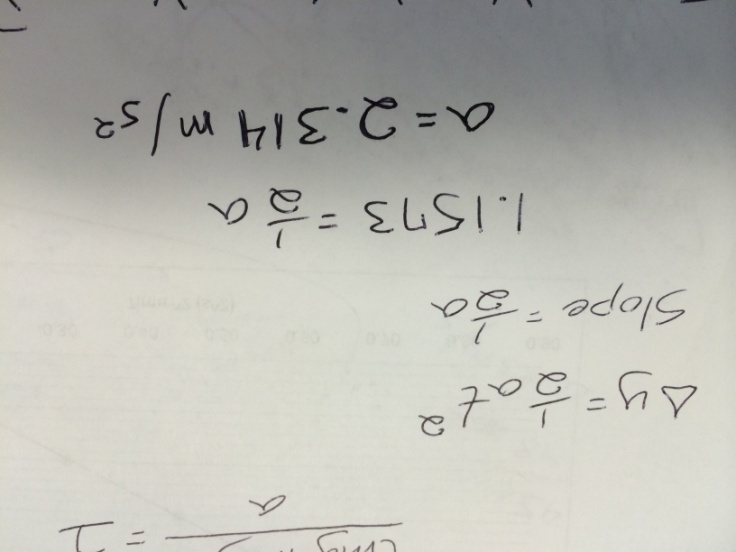 Δy = 1/2 at²
Slope = 1/2 a
1.1573 = 1/2 a
a = 2.314 m/s²